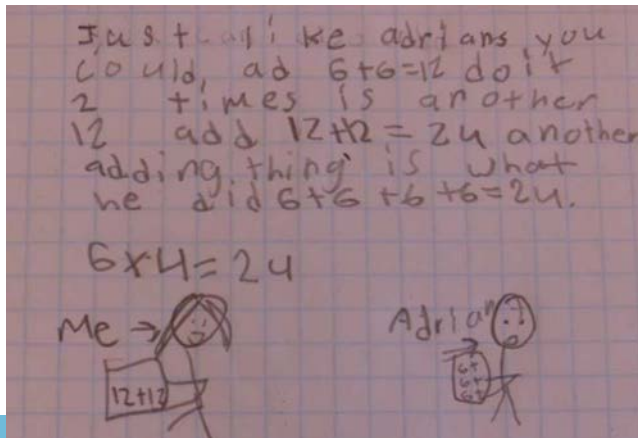 Just like adrians you
could, ad 6+6=12 do it
2 times is another
12 add 12+12=24 another
adding thing is what
he did 6+6+6+6=24.
6x4=24
Me →
Adrian
12+12
6+
6+
6+